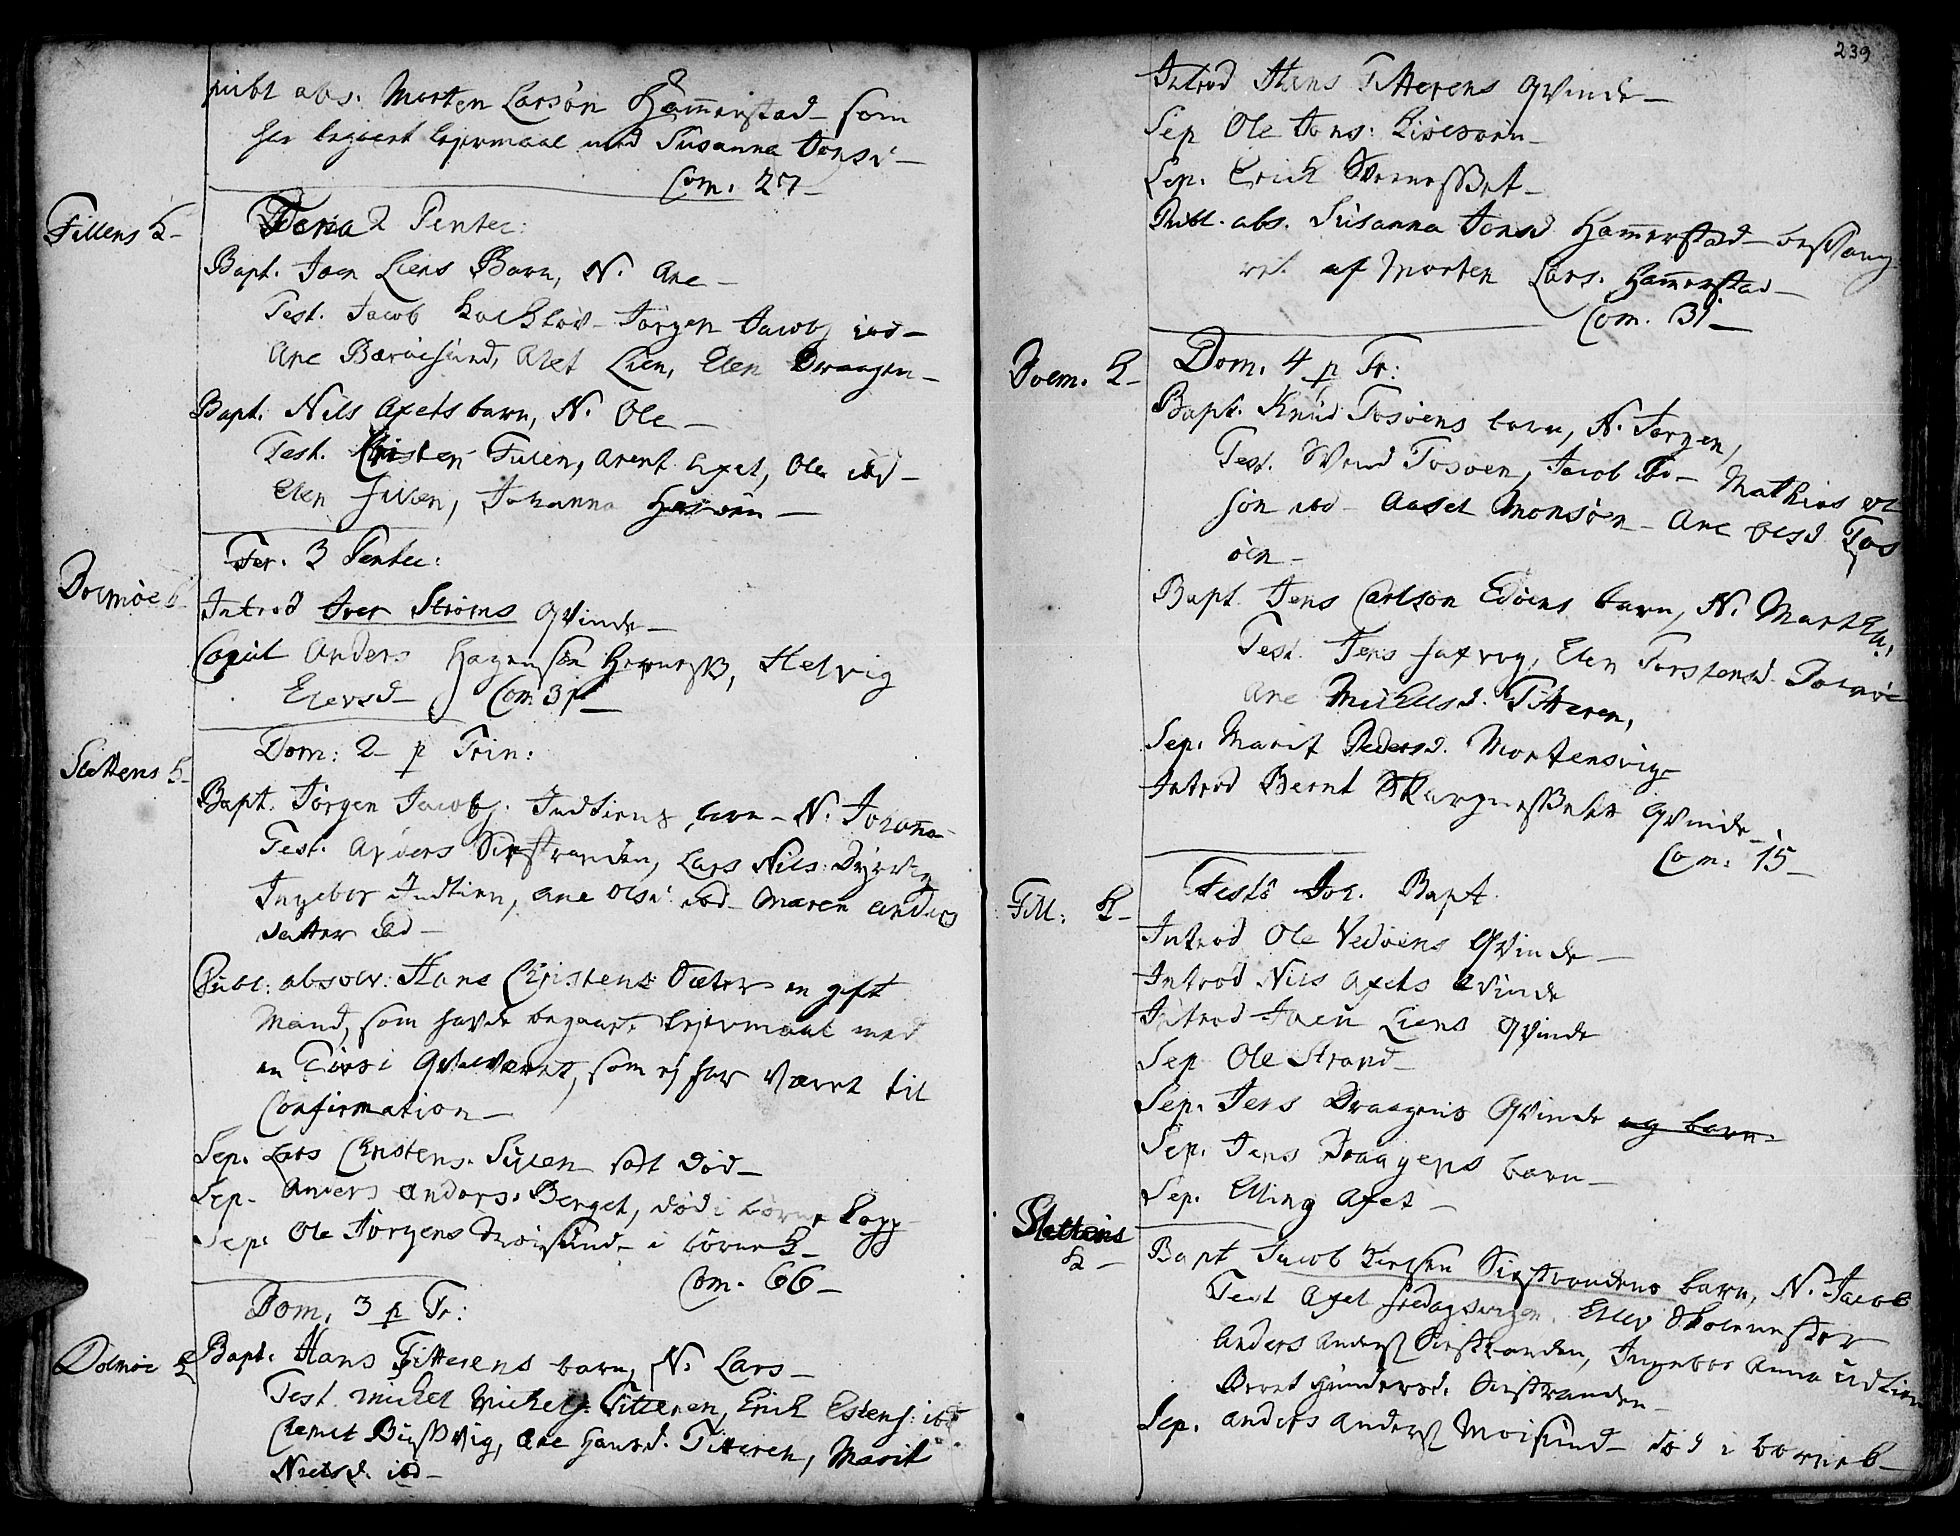 publ abs. Morten Larsøn Ham̄erstad som
har begaaet lejermaal med Susanna Jonsd
Com. 27
Fillens K
Feria 2 Pentec:
Bapt. Joen Liens Barn, N. Ane
Test. Jacob Jørgen Jacobs ibd
Ane Barøesund, Alet Lien, Elen Draagen
Bapt. Nils Axets barn, N. Ole
Test. Christen Fillen, Arent Axet, Ole ibd
Elen Fillen, Johanna
Fer. 3 Pentec:
Dolmøe K
Introd Iver Strøms Qvinde
Copul Anders Hagensøn Helvig
Elevsd Com 31
Slettens K
Dom: 2 p Trin:
Bapt. Jørgen Jacobs. Indtiens barn N. Johan̄a
Test. Anders Sivstranden, Lars Nils: Dyrvig
Ingebor Indtien, Ane Olsd ibd Maren Anders
datter ibd
Publ: absolv: Hans Christens: Sæter en gift
Mand, som havde begaaet lejermaal med
en Tøes i Qvalværet, som ej har været til
Confirmation
Sep. Lars Christens. Sülen født død
Sep. Anders Anders: Berget, død i børne kopp
Sep: Ole Jørgens Moisund i børne K
Com. 66
Dom. 3 p Tr:
Dolmøe K
Bapt. Hans Titterens barn, N. Lars
Test. Michel Michels: Titteren, Erich Estens: ibd
Ane Hansd. Titteren, Marit
Nielsd. ibd
239
Introd Hans Titterens Qvinde
Sep Ole Jons:
Sep. Erich
Publ. abs. Susanna Jonsd Ham̄erstad besvang
ret af Morten Lars. Ham̄erstad
Com. 31
Dolm. K
Dom. 4 p Tr:
Bapt. Knud Tosøens barn, N. Jørgen,
Test. Svend Tosøen, Jacob ibd Mathias Ol
søn ibd Aasel Monsøen Ane Olsd Tos
øen
Bapt. Jens Carlsøn Edøens barn, N. Martha,
Test. Jens Elen Torstensd Dolmøe
Ane Michelsd. Titteren,
Sep. Marit Pedersd. Mortensvig
Introd Bernt Qvinde
Com: 15
Fill: K
Festo Joh. Bapt.
Introd Ole Vedøens Qvinde
Introd Nils Axets Qvinde
Introd Joen Liens Qvinde
Sep Ole Strand
Sep. Jens Draagens Qvinde og barn
Sep. Jens Draagens barn
Sep. Elling Axet
Slettens
K
Bapt Jacob Sivstrandens barn, N. Jacob
Test Axel Ellev Skolemester
Anders Anders Sivstranden, Ingebor Anna Indtien
Beret Gundersd. Sivstranden
Sep. Anders Anders Moisund død i børne K